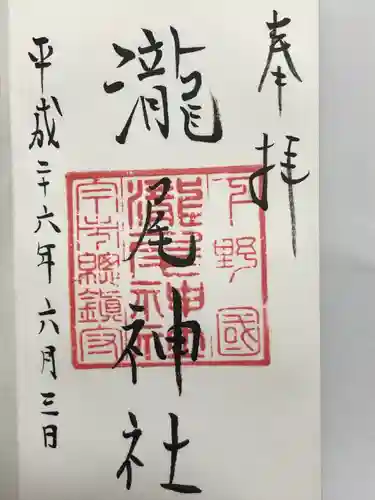 奉拝
瀧尾神社
下野國
瀧尾神社
平成二十六年六月三日